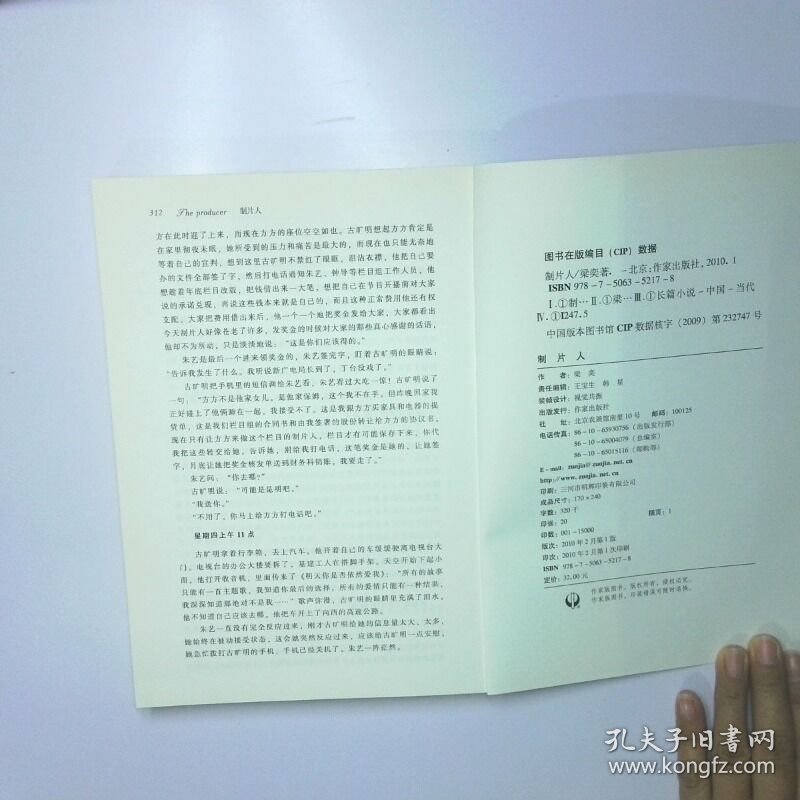 312 The producer 制片人
方在此时迎了上来，而现在方方的座位空空如也。古旷明想起方方肯定是
在家里彻夜未眠，她所受到的压力和痛苦是最大的，而现在也只能无奈地
等着自己的宣判，想到这里古旷明不禁红了眼眶，沮沾衣襟，他把自己要
办的文件全部签了字，然后打电话通知朱艺、钟导等栏目组工作人员，他
想趁着年底栏目改版，把钱借出来一大笔，想把自己在节目开播前对大家
说的承诺兑现，再说这些钱本来就是自己的，而且这种正常费用他还有权
支配。大家把费用借出来后，他一个一个地把奖金发给大家，大家都看出
今天制片人好像苍老了许多，发奖金的时候对大家的那些真心感谢的话语，
他却不为所动，只是淡淡地说：“这是你们应该得的。”
朱艺是最后一个进来领奖金的，朱艺签完字，盯着古旷明的眼睛说：
“告诉我发生了什么。我听说新广电局长到了，丁台没戏了。”
古旷明把手机里的短信调给朱艺看，朱艺看过大吃一惊！古旷明说了
一句：“方方不是他家女儿，是他家保姆，这个我不在乎。但昨晚回家我
正好碰上了他俩躺在一起，我接受不了。这是我跟方方买家具和电器的提
货单，这是我们栏目组的合同书和由我签署的股份转让给方方的协议书，
现在只有让方方来做这个栏目的制片人，栏目才有可能保存下来，你代
我把这些转交给她，告诉她，别给我打电话，这笔奖金是她的，让她签
字，月底让她把奖金核发单送到财务科销账。我要走了。”
朱艺问：“你去哪?”
古旷明说：“可能是昆明吧。”
“我送你。”
“不用了，你马上给方方打电话吧。”
星期四上午 11 点
古旷明拿着行李箱，去上汽车。他开着自己的车缓缓驶离电视台大
门。电视台的办公大楼要拆了，基建工人在搭脚手架，天空开始下起小
雨，他打开收音机，里面传来了《明天你是否依然爱我》：“所有的故事
只能有一首主题歌，我知道你最后的选择，所有的爱情只能有一种结果，
我深深知道那绝对不是我……”歌声弥漫，古旷明的眼睛里充满了泪水，
他不知道自己应该去哪，他把车开上了向西的高速公路。
朱艺一直没有完全反应过来，刚才古旷明给她的信息量太大、太多，
她始终在被动接受状态，这会她突然反应过来，应该给古旷明一点安慰，
她急忙拨打古旷明的手机，手机已经关机了，朱艺一阵茫然。
图书在版编目（CIP）数据
制片人/梁奕著. －北京:作家出版社，2010.1
ISBN 978－7－5063－5217－8
Ⅰ.①制… Ⅱ.①梁… Ⅲ.①长篇小说－中国－当代
Ⅳ.①I247.5
中国版本图书馆 CIP 数据核字（2009）第 232747 号
制片人
作者：梁奕
责任编辑：王宝生 韩星
装帧设计：视觉共振
出版发行：作家出版社
社址：北京农展馆南里 10 号 邮码：100125
电话传真：86－10－65930756（出版发行部）
86－10－65004079（总编室）
86－10－65015116（邮购部）
E－mail：zuojia@zuojia.net.cn
http://www.zuojia.net.cn
印刷：三河市明辉印装有限公司
成品尺寸：170×240
字数：320 千
印张：20 插页：1
印数：001－15000
版次：2010 年 2 月第 1 版
印次：2010 年 2 月第 1 次印刷
ISBN 978－7－5063－5217－8
定价：32.00 元
作家版图书，版权所有，侵权必究。
作家版图书，印装错误可随时退换。
孔夫子旧书网
www.kongfz.com